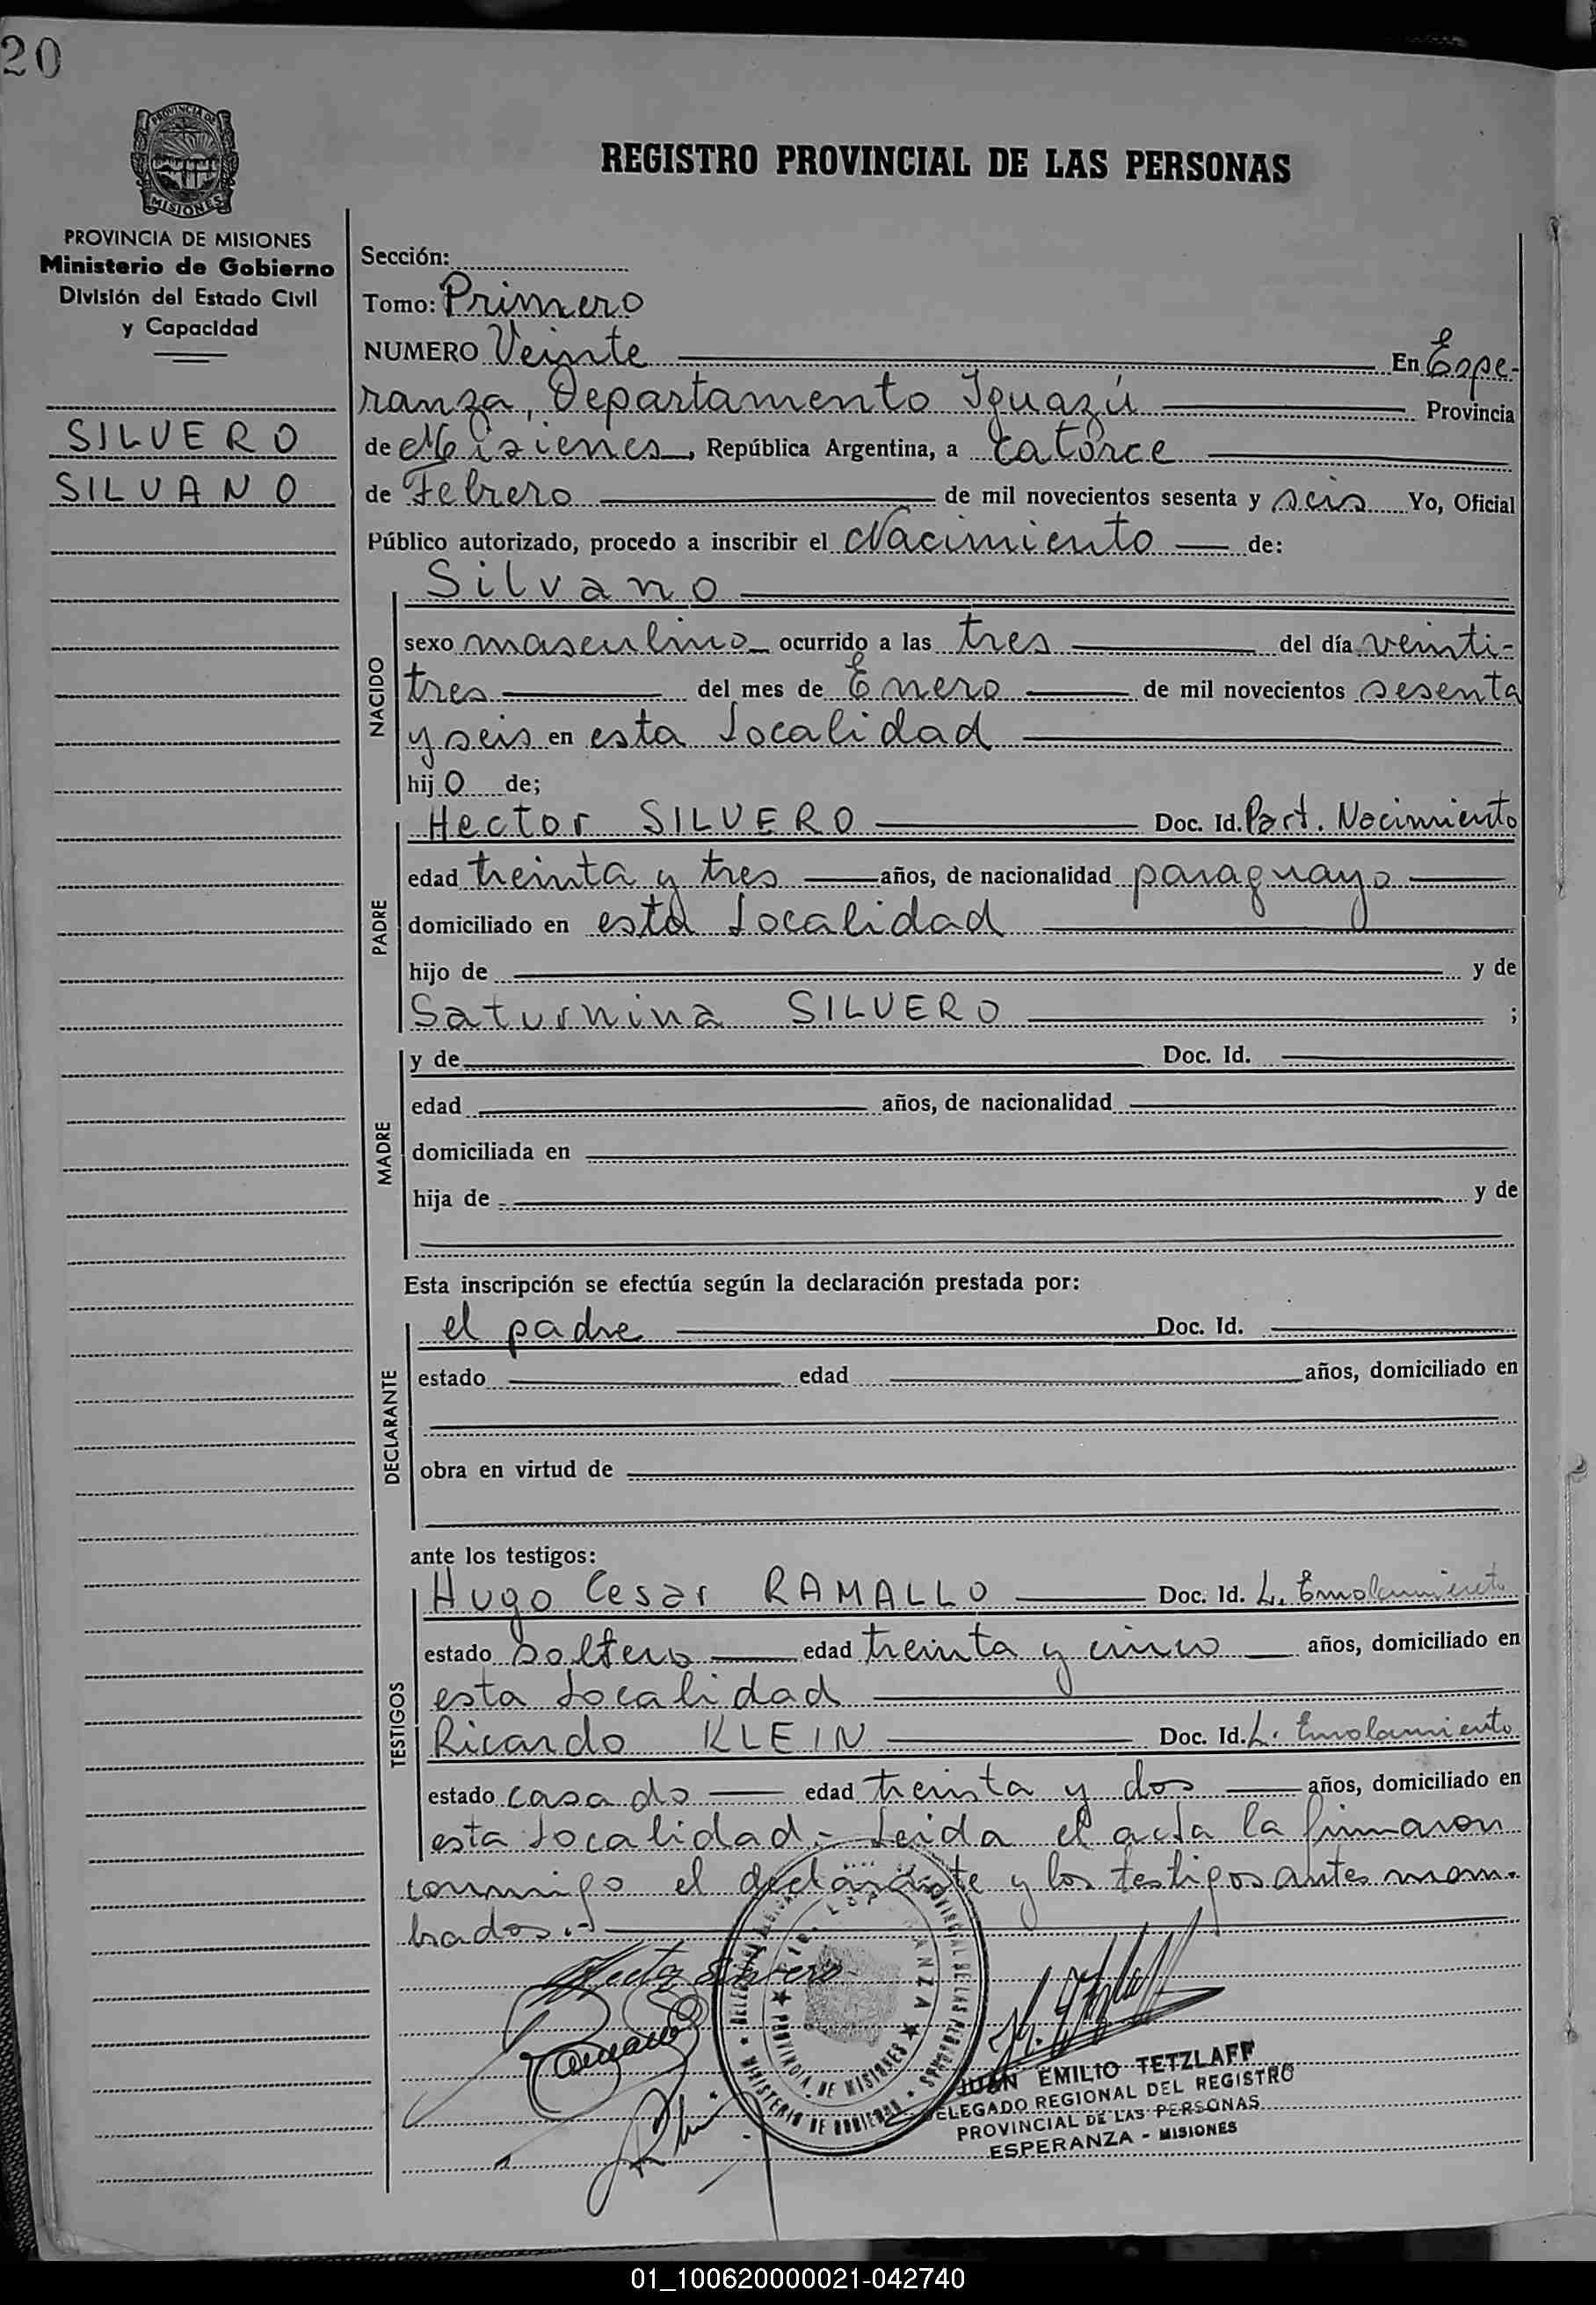 20
PROVINCIA DE
MISIONES
PROVINCIA DE MISIONES
Ministerio de Gobierno
División del Estado Civil
y Capacidad
SILVERO
SILVANO
REGISTRO PROVINCIAL DE LAS PERSONAS
Sección:
Tomo: Primero
NUMERO Veinte En Espe-
ranza, Departamento Iguazú Provincia
de Misiones, República Argentina, a catorce
de Febrero de mil novecientos sesenta y seis Yo, Oficial
Público autorizado, procedo a inscribir el Nacimiento de:
NACIDO
Silvano
sexo masculino ocurrido a las tres del día veinti-
tres del mes de Enero de mil novecientos sesenta
y seis en esta Localidad
hijo de;
PADRE
Hector SILVERO Doc. Id. Part. Nacimiento
edad treinta y tres años, de nacionalidad paraguayo
domiciliado en esta Localidad
hijo de y de
Saturnina SILVERO ;
MADRE
y de Doc. Id.
edad años, de nacionalidad
domiciliada en
hija de y de
Esta inscripción se efectúa según la declaración prestada por:
DECLARANTE
el padre Doc. Id.
estado edad años, domiciliado en
obra en virtud de
ante los testigos:
TESTIGOS
Hugo Cesar RAMALLO Doc. Id. L. Enrolamiento
estado soltero edad treinta y cinco años, domiciliado en
esta Localidad
Ricardo KLEIN Doc. Id. L. Enrolamiento
estado casado edad treinta y dos años, domiciliado en
esta Localidad.- Leida el acta la firmaron
conmigo el declarante y los testigos antes nom-
brados.-
Hector Silvero
PROVINCIAL DE LAS PERSONAS
MINISTERIO DE GOBIERNO
PROVINCIA DE MISIONES
JUAN EMILIO TETZLAFF
DELEGADO REGIONAL DEL REGISTRO
PROVINCIAL DE LAS PERSONAS
ESPERANZA - MISIONES
01_100620000021-042740